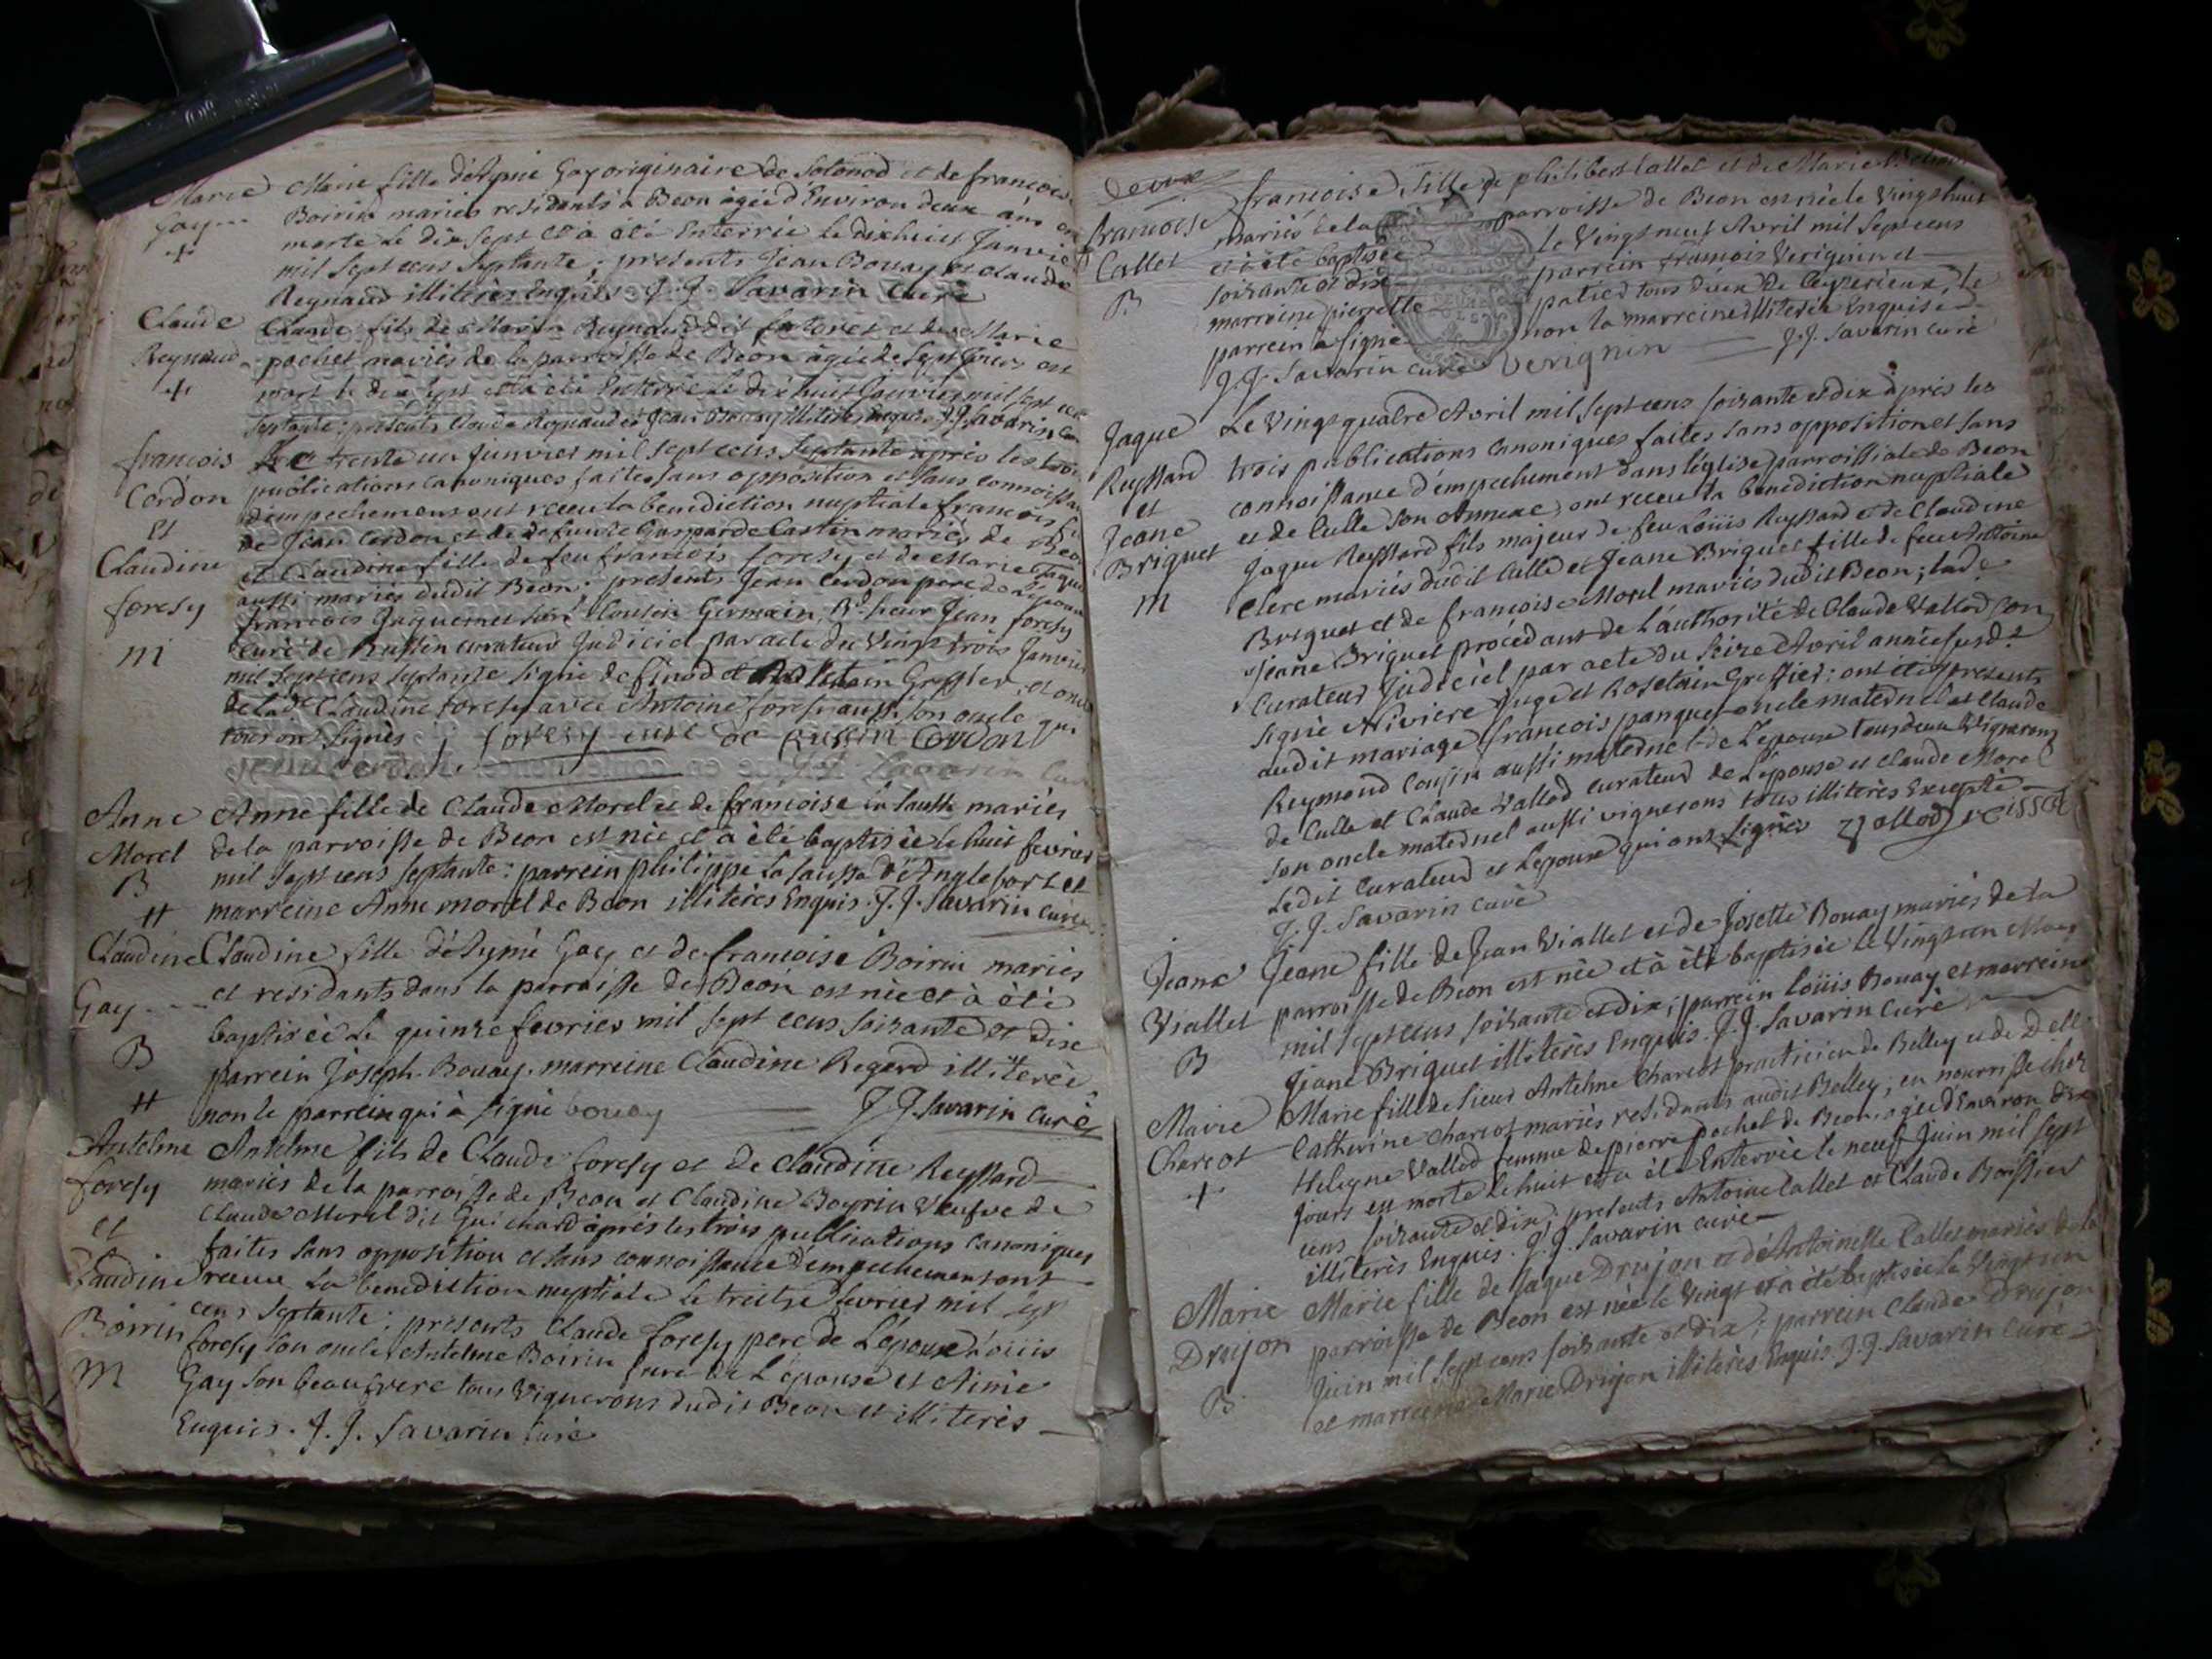 Marie
Gay
+
Marie fille d'Aymé Gay originaire de Sotonod et de francoise
Boirin mariés residants a Beon agée d'Environ deux ans
morte le dix sept et à été Enterrée le dixhuit Janvie
mil sept cens septante ; presents Jean Bouay et Claude
Reynaud illiterés Enquis J. J. Savarin Curé
Claude
Reynaud
+
Claude fils de Reynaud dit et de Marie
pochet mariés de la parroisse de Beon agé de sept jours est
mort le dix sept et à été Enterré le dix huit Janvier mil sept cens
septante ; presents Claude Reynaud et Jean Bouay illiteres Enquis J. J. Savarin
francois
Cordon
et
Claudine
foresy
m
Le trente un Janvier mil sept cens septante après les trois
publications canoniques faites sans opposition et sans connoissan
d'empechement ont receu la benediction nuptiale francois
de Jean Cordon et de defunte Gasparde Castin mariés de Beon
et Claudine fille de feu francois foresy et de Marie
aussi mariés dudit Beon ; presents Jean Cordon pere de L'epoux
francois Jaquemet son Cousin Germain, Sr. Jean foresy
curé de Ruffin curateur Judiciel par acte du Vingt trois Janvier
mil sept cens septante signé Greffier, et oncle
de lad.e Claudine foresy avec Antoine foresy aussi son oncle qui
tous ont signés ; foresy curé de Ruffin Cordon
J. J. Savarin
Anne
Morel
B
#
Anne fille de Claude Morel et de francoise la Sausse mariés
de la parroisse de Beon est née et à été baptisée le huit fevrier
mil sept cens septante : parrein philippe la Sausse d'Anglefort et
marreine Anne morel de Beon illiterés Enquis. J. J. Savarin Curé
Claudine
Gay
B
#
Claudine fille d'Aymé Gay et de francoise Boirin mariés
et residants dans la parroisse de Beon est née et à été
baptisée le quinze fevrier mil sept cens soixante et dix
parrein Joseph Bouay, marreine Claudine Regard illiterée
non le parrein qui à signé bouay J. J. Savarin Curé
Antelme
foresy
et
Claudine
Boirin
m
Antelme fils de Claude foresy et de Claudine Reyssard
mariés de la parroisse de Beon et Claudine Boyrin Veufve de
Claude Morel dit Guichard après les trois publications canoniques
faites sans opposition et sans connoissance d'empechement ont
receu la benediction nuptiale le treitze fevrier mil sept
cens septante ; presents Claude foresy pere de L'epoux Loüis
foresy son oncle, Antelme Boirin frere de L'epouse et Aimé
Gay son beaufrere tous Vignerons dudit Beon et illiterés
Enquis. J. J. Savarin Curé
deux
francoise
Callet
B
francoise fille de philibert Callet et de Marie
mariés de la parroisse de Beon est née le Vingt huit
et à été baptisée le Vingt neuf Avril mil sept cens
soixante et dix parrein francois Verignin et
marreine pierrette tous deux de Ceyzerieux, le
parrein à signé non la marreine illiterée Enquise
J. J. Savarin curé Verignin J. J. Savarin curé
Jaque
Reyssard
et
Jeane
Briquet
m
Le Vingt quatre Avril mil sept cens soixante et dix après les
trois publications canoniques faites sans opposition et sans
connoissance d'empechement dans l'église parroissiale de Beon
et de Culle son Annexe, ont receu la benediction nuptiale
Jaque Reyssard fils majeur de feu Loüis Reyssard et de Claudine
Clerc mariés dudit Culle et Jeane Briquet fille de feu Antoine
Briquet et de francoise Morel mariés dudit Beon ; lad.e
Jeane Briquet procedant de L'authorité de Claude Vallod son
Curateur Judiciel par acte du seize Avril année susd.e
signé Niviere Juge et Roselain Greffier : ont été presents
audit mariage francois panquet oncle maternel et Claude
Reymond Cousin aussi maternel de L'epoux tous deux Vignerons
de Culle et Claude Vallod curateur de L'epouse et Claude Morel
son oncle maternel aussi vignerons tous illiterés Excepté
Ledit Curateur et L'epoux qui ont signés Vallod reissar
J. J. Savarin curé
Jeane
Viallet
B
Jeane fille de Jean Viallet et de Josette Bouay mariés de la
parroisse de Beon est née et à été baptisée le Vingt un May
mil sept cens soixante et dix ; parrein Loüis Bouay et marreine
Jeane Briquet illiterés Enquis. J. J. Savarin Curé
Marie
Charcot
+
Marie fille de Sieur Antelme Charcot practicien de Belley et de D.elle
Catherine Charcot mariés residants audit Belley ; en nourrisse chez
Heleyne Vallod femme de pierre pochet de Beon, agée d'Environ dix
jours est morte le huit et à été Enterrée le neuf Juin mil sept
cens soixante et dix ; presents Antoine Callet et Claude Boissier
illiterés Enquis. J. J. Savarin curé
Marie
Drujon
B
Marie fille de Jaque Drujon et d'Antoinette Callet mariés de la
parroisse de Beon est née le Vingt et à été baptisée le Vingt un
Juin mil sept cens soixante et dix ; parrein Claude Drujon
et marreine Marie Drujon illiterés Enquis. J. J. Savarin curé